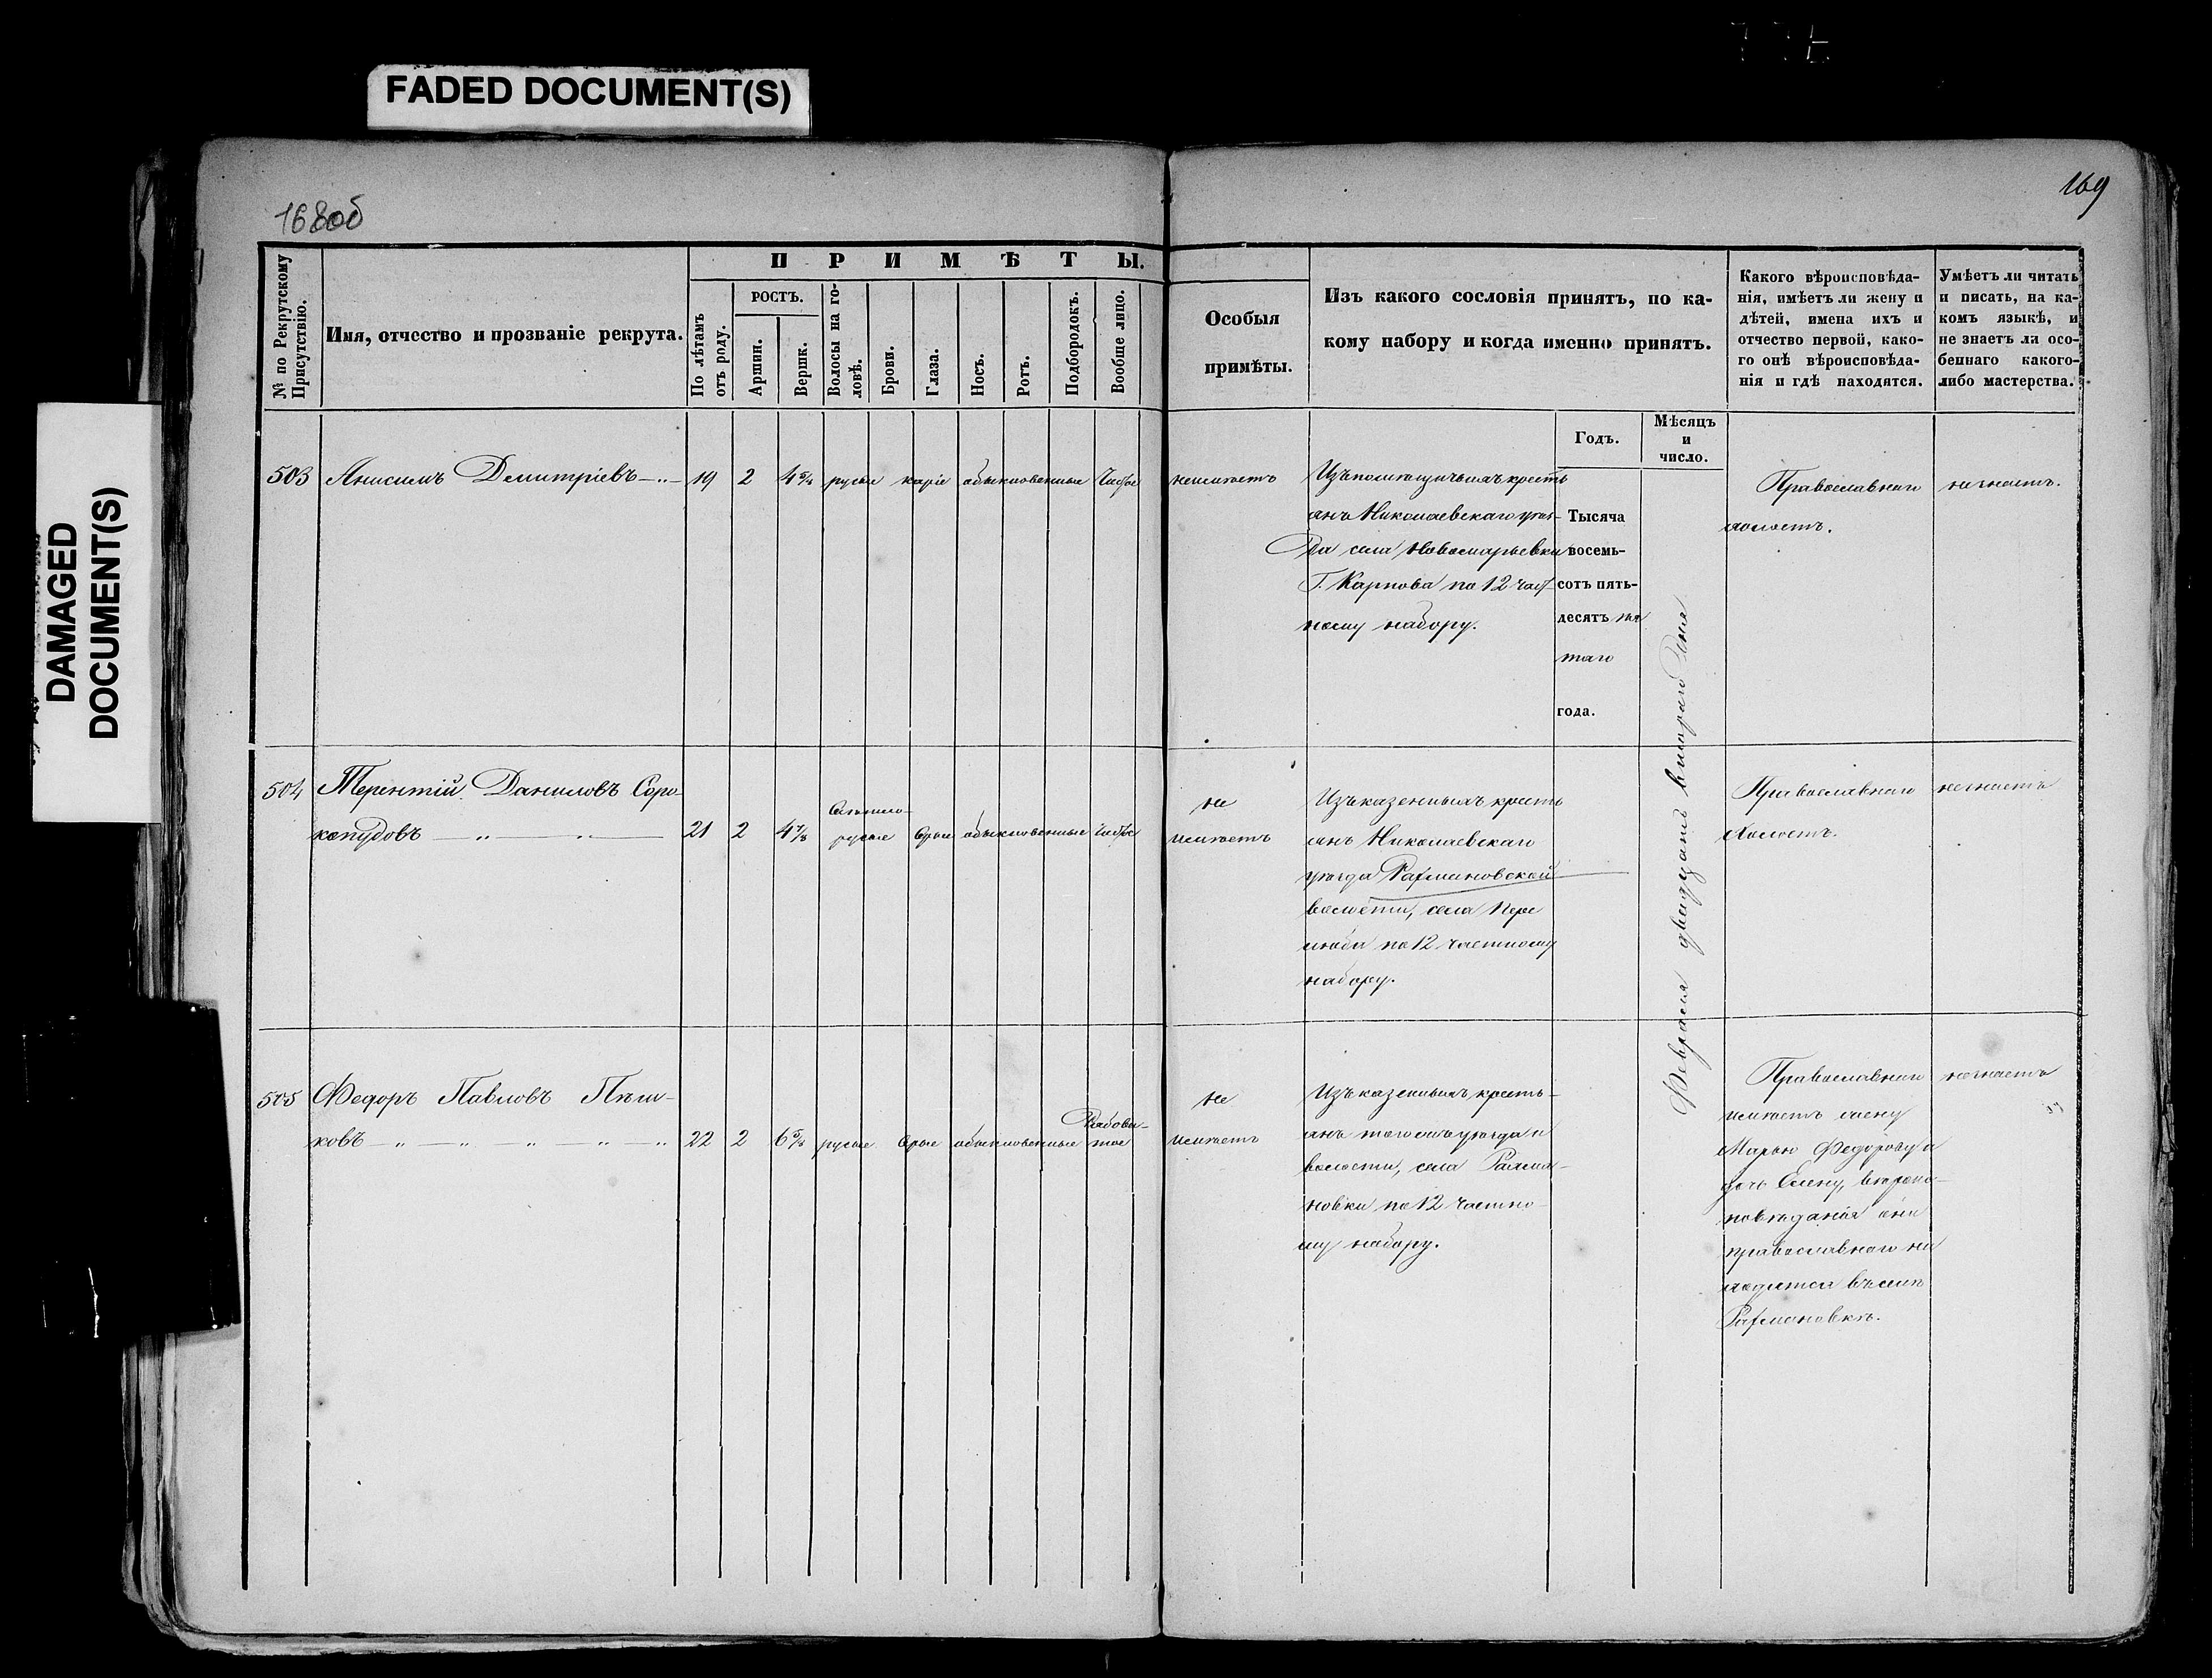 FADED DOCUMENT(S)
DAMAGED
DOCUMENT(S)
168об
169
№ по Рекрутскому
Присутствію.
Имя, отчество и прозваніе рекрута.
ПРИМѢТЫ.
По лѣтамъ
отъ роду.
РОСТЪ.
Аршин.
Вершк.
Волосы на го-
ловѣ.
Брови.
Глаза.
Носъ.
Ротъ.
Подбородокъ.
Вообще лицо.
Особыя
примѣты.
Изъ какого сословія принятъ, по ка-
кому набору и когда именно принятъ.
Какого вѣроисповѣда-
нія, имѣетъ ли жену и
дѣтей, имена ихъ и
отчество первой, како-
го онѣ вѣроисповѣда-
нія и гдѣ находятся.
Умѣетъ ли читать
и писать, на ка-
комъ языкѣ, и
не знаетъ ли осо-
беннаго какого-
либо мастерства.
Годъ.
Мѣсяцъ
и
число.
503 Анисимъ Дмитріевъ 19 2 4 5/4 русые каріе обыкновенные Чистое неимѣетъ
Изъ помѣщичьихъ кресть
янъ Николаевскаго уѣз-
да села Новомарьевки
Г. Карпова по 12 част-
ному набору.
Тысяча
восемь-
сотъ пять-
десятъ пя
таго
года.
Февраля двадцать втораго дня
Православнаго
холостъ.
незнаетъ.
504 Терентій Даниловъ Соро-
копудовъ 21 2 4 7/8 Свѣтло-
русые сѣрые обыкновенные Чистое
не
имѣетъ
Изъ казенныхъ кресть
янъ Николаевскаго
уѣзда Рахмановской
волости, села Пере
люба по 12 частному
набору.
Православнаго
Холостъ.
незнаетъ
505 Федоръ Павловъ Пѣш-
ковъ 22 2 6 5/8 русые сѣрые обыкновенные Рябова-
тое
не
имѣетъ
Изъ казенныхъ кресть-
янъ того же уѣзда и
волости, села Рахма-
новки по 12 частно-
му набору.
Православнаго
имѣетъ жену
Марью Федорову и
дочь Елену, вѣроис-
повѣданія они
православнаго на
ходятся въ селѣ
Рахмановкѣ.
незнаетъ